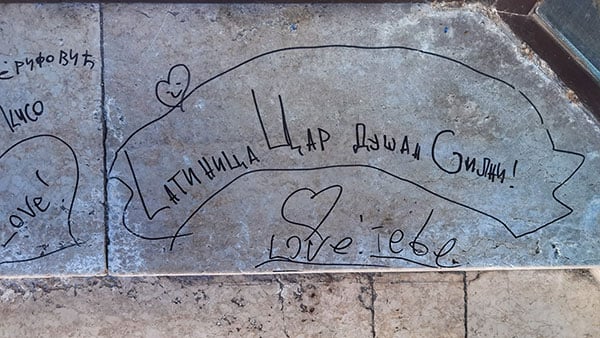 ЕРИФОВИЋ
Кисо
Love!
LАТИНИЦА ЦАР ДУШАН СИЛНИ!
Love tebe.